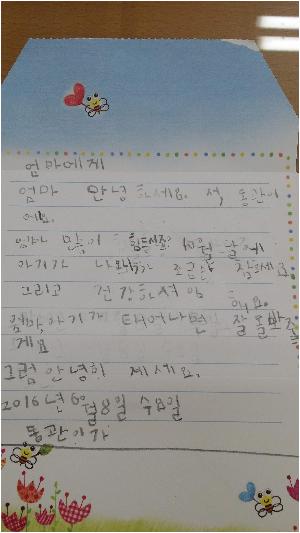 엄마에게
엄마 안녕하세요. 저 동관이
에요.
엄마 많이 힘드시죠? 10월 달에
아기가 나오니까 조금만 참으세요
그리고 건강하셔야 해요.
엄마 아기가 태어나면 잘 돌봐줄
게요
그럼 안녕히 계세요.
2016년 6월 8일 수요일
동관이가